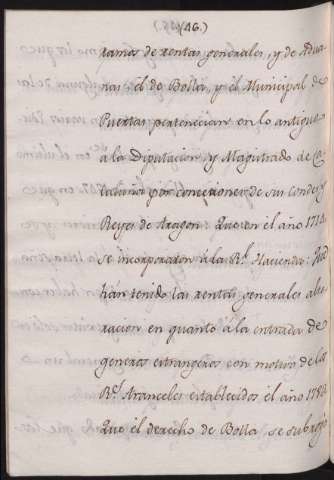 (46.)
ramos de rentas generales, y de Adua
nas el de Bolla, y el Municipal de
Puertas pertenecian en lo antiguo
a la Diputacion y Magistrado de Ca
taluña por concesiones de sus Condes y
Reyes de Aragon. Que en el año 1714
se incorporaron á la Rl. Hacienda. Que
han tenido las rentas generales alte
racion en quanto á la entrada de
generos estrangeros con motivo de los
Rs. Aranceles establecidos el año 1782.
Que el derecho de Bolla se subrogó